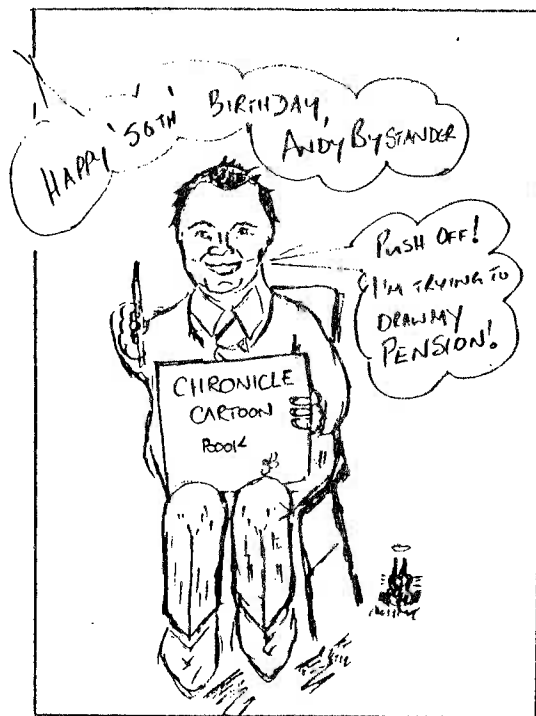 HAPPY '50TH' BIRTHDAY,
ANDY BYSTANDER
PUSH OFF!
I'M TRYING TO
DRAW MY
PENSION!
CHRONICLE
CARTOON
BOOK